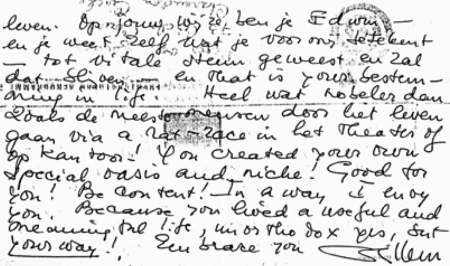 leven. Op jouw wijze, ben je Edwin —
en je weet zelf wat je voor ons betekent
— tot vitale steun geweest en zal
dat blijven — en that is your bestem-
ming in life. Heel wat nobeler dan
zoals de meesten door het leven
gaan via a rat-race in het theater of
op kantoor! You created your own
special oasis and niche. Good for
you! Be content! — In a way I envy
you. Because you lived a useful and
meaningful life, unorthodox yes, but
your way! Een brave you Willem